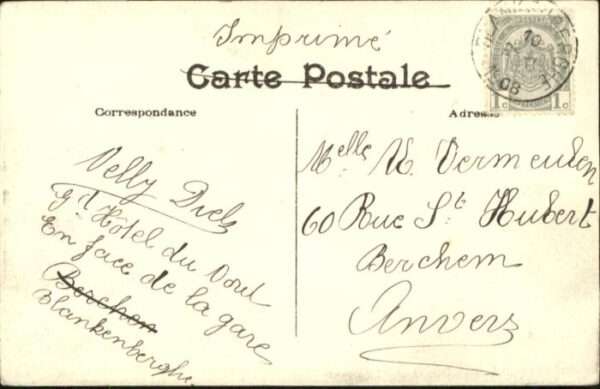 Imprimé
Carte Postale
Correspondance
Nelly Diels
gd Hôtel du Nord
En face de la gare
Berchem
Blankenberghe
Adresse
Melle N. Vermeulen
60 Rue St. Hubert
Berchem
Anvers
10
08
1c 1c